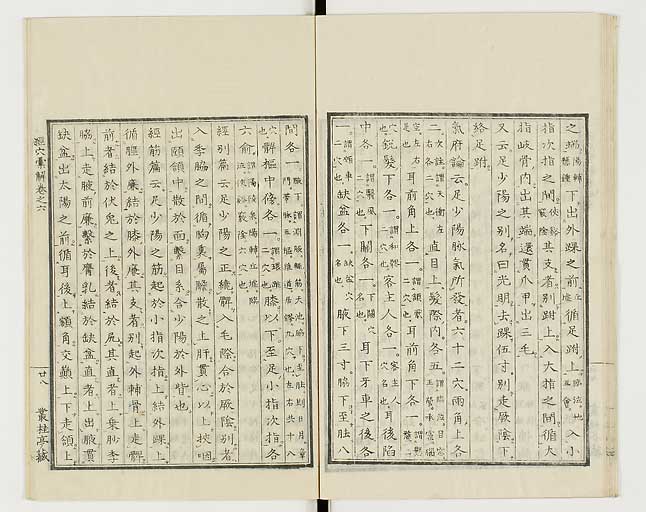 之端陽輔懸鍾下出外踝之前丘墟循足跗上臨泣地五會入小
指次指之間俠谿竅陰其支者別跗上入大指之間循大
指歧骨內出其端還貫爪甲出三毛
又云足少陽之別名曰光明去踝伍寸別走厥陰下
絡足跗
氣府論云足少陽脉氣所發者六十二穴兩角上各
二次註謂天衝左右各二穴也直目上髮際內各五
是也耳前角上各一耳前角下各一
銳髮下各一客主人各一客主人穴名也耳後陷
中各一下關各一下關穴名也耳下牙車之後各
一缺盆各一缺盆穴名也腋下三寸脇下至胠八
間各一
髀樞中傍各一膝以下至足小指次指各
六俞
經別篇云足少陽之正繞髀入毛際合於厥陰別者
入季脇之間循胸裏屬膽散之上肝貫心以上挾咽
出頤頷中散於面繫目系合少陽於外眥也
經筋篇云足少陽之筋起於小指次指上結外踝上
循脛外廉結於膝外廉其支者別起外輔骨上走髀
前者結於伏兔之上後者結於尻其直者上乗䏚季
脇上走腋前廉繫於膺乳結於缺盆直者上出腋貫
缺盆出太陽之前循耳後上額角交巔上下走頷上
經穴彙解卷之六
廿八
叢桂亭藏